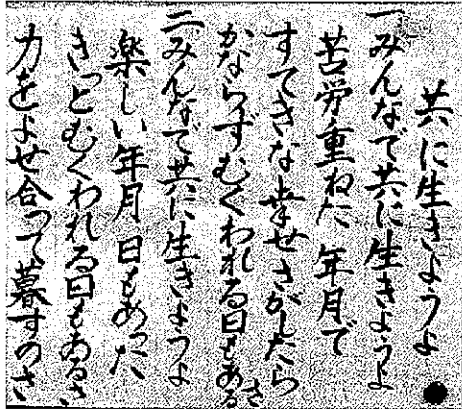 共に生きようよ
一みんなで共に生きようよ
苦労重ねた 年月で
すてきな幸せさがしたら
かならずむくわれる日もあるさ
二みんなで共に生きようよ
楽しい年月 日もあった
きっとむくわれる日もあるさ
力をよせ合って暮すのさ